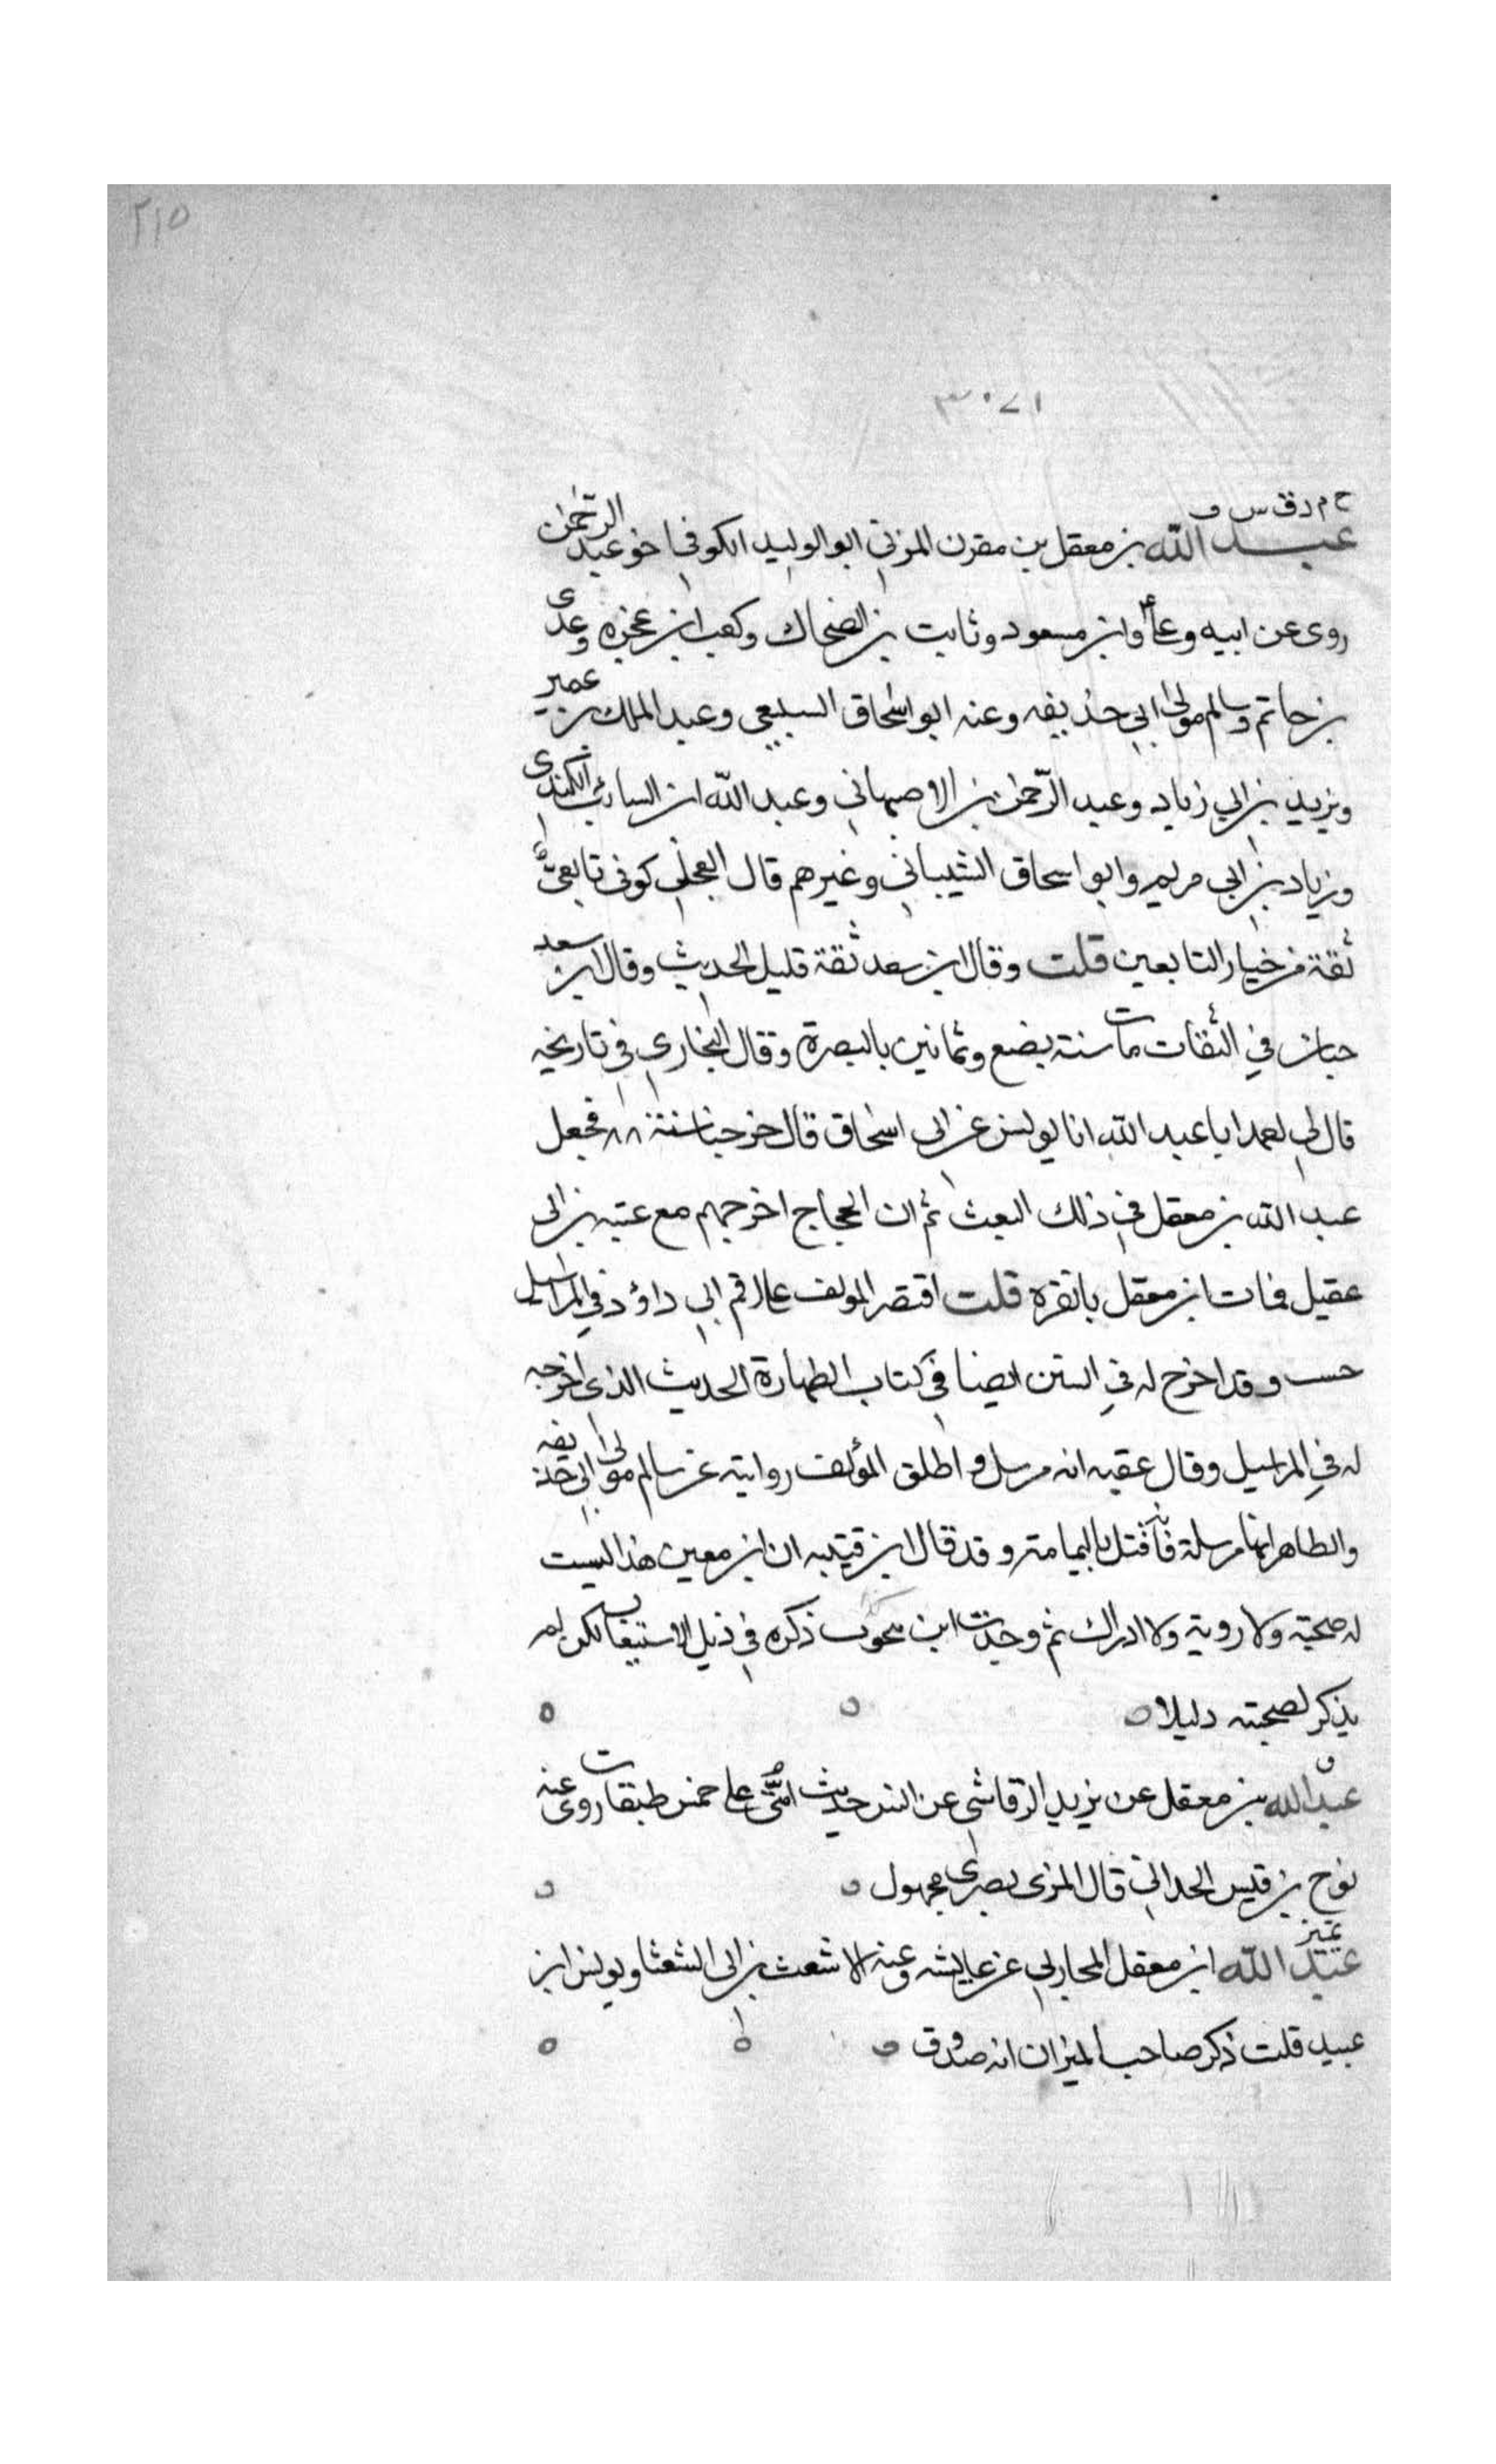 ٢١٥
٣٠٧١
خ م د ق س ف
عبد الله بن معقل بن مقرن المزني ابو الوليد الكوفي اخو عبد الرحمن
روى عن ابيه وعلي وابن مسعود وثابت بن الضحاك وكعب ابن عجزه وعدى
بن حاتم وسالم مولى ابي حذيفه وعنه ابو اسحاق السبيعي وعبد الملك بن عمير
ويزيد بن ابي زياد وعبد الرحمن بن الاصبهاني وعبد الله ابن السائب الكندى
وزياد بن ابي مريم وابو اسحاق الشيباني وغيرهم قال العجلي كوفي تابعي
ثقة من خيار التابعين قلت وقال ابن سعد ثقة قليل الحديث وقال ابن سعد
حبان في الثقات مات سنة بضع وثمانين بالبصرة وقال البخاري في تاريخه
قال لي ابا عبد الله انا يونس عن ابي اسحاق قال خرجنا سنة ٨٨ فجعل
عبد الله بن معقل في ذلك البعث ثم ان الحجاج اخرجهم مع عتبه بن ابي
عقيل فمات ابن معقل بانقره قلت اقتصر المولف علا رقم ابي داؤد في المراسيل
حسب وقد اخرج له في السنن ايضا في كتاب الطهارة الحديث الذي اخرجه
له في المراسيل وقال عقبه انه مرسل و اطلق المؤلف روايته عن سالم مولى ابي حذيفه
والظاهر انها مرسلة قتل باليمامة وقد قال ابن قتيبه ان ابن معين هذا ليست
له صحبة ولا روية ولا ادراك ثم وجدت ابن ذكره في ذيل الاستيعاب لكن لم
يذكر لصحبته دليلا
ق
عبد الله بن معقل عن يزيد الرقاشي عن انس حديث امتي على خمس طبقات روى عنه
نوح بن قيس الحداني قال المزى بصرى مجهول
تميز
عبد الله ابن معقل المحاربي عن عايشه وعنه الاشعث بن ابي الشعثا ويونس ابن
عبيد قلت ذكر صاحب الميزان انه صدوق